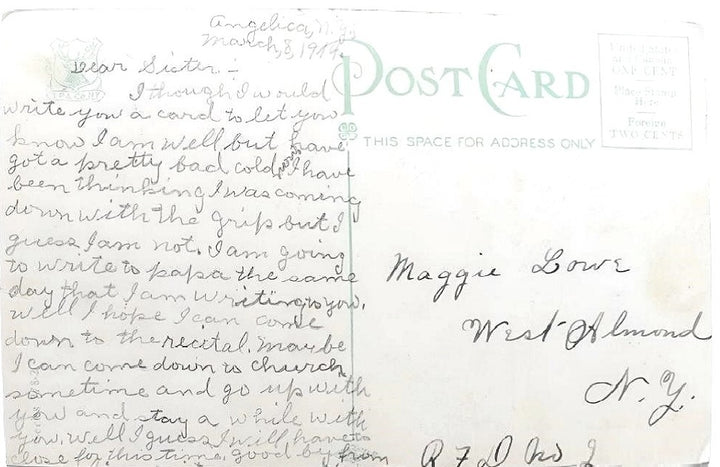 Angelica, N.Y.
March, 8, 1914.
Dear Sister:-
I though I would
write you a card to let you
know I am well but have
got a pretty bad cold, now I have
been thinking I was coming
down with the grip but I
guess I am not. I am going
to write to papa the same
day that I am writing to you.
Well I hope I can come
down to the recital. Maybe
I can come down to church
sometime and go up with
you and stay a while with
you. Well I guess I will have to
close for this time, good by from
POST CARD
THIS SPACE FOR ADDRESS ONLY
ONE CENT
Place Stamp
Here
Foreign
TWO CENTS
Maggie Lowe
West Almond
N.Y.
R F D No 2